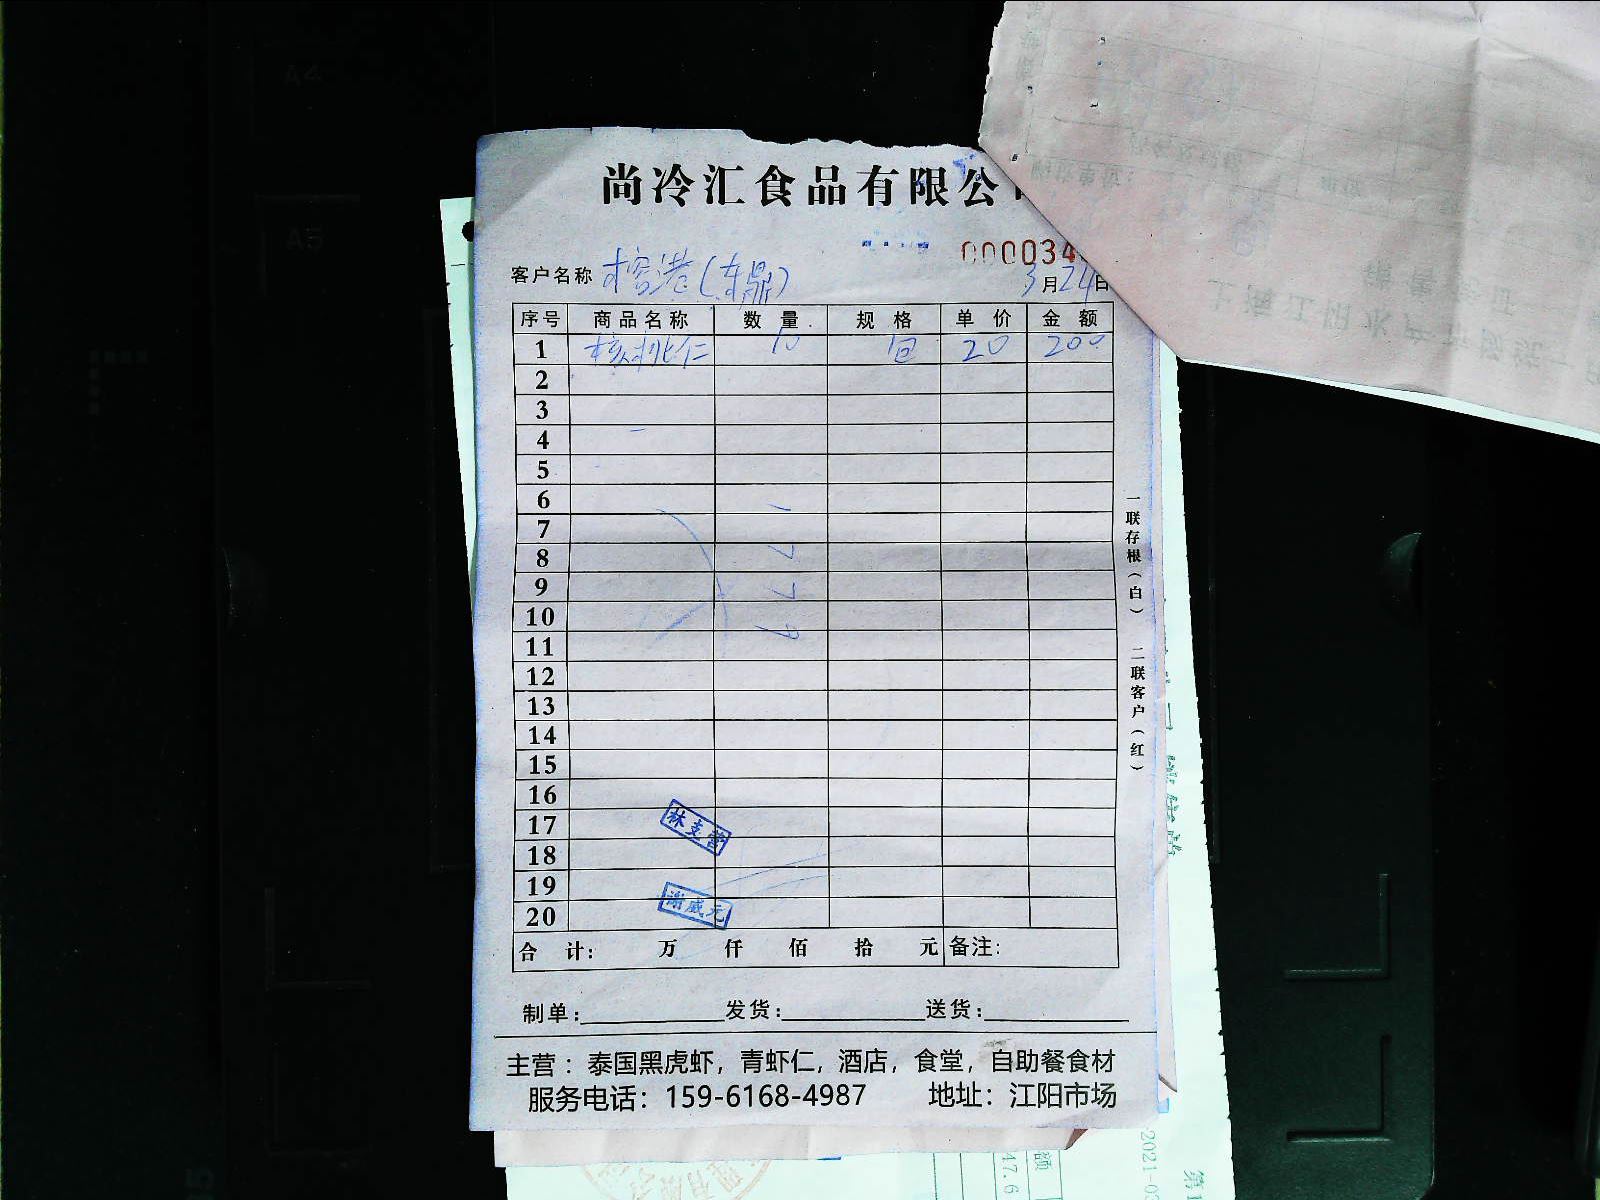 尚冷汇食品有限公
000034
客户名称 榕港(东鼎) 3月24日
序号 商品名称 数量 规格 单价 金额
1 核桃仁 10 包 20 200
2
3
4
5
6
7
8
9
10
11
12
13
14
15
16
17
18
19
20
林支营
谢威元
合计: 万 仟 佰 拾 元 备注:
一联存根(白) 二联客户(红)
制单: 发货: 送货:
主营:泰国黑虎虾,青虾仁,酒店,食堂,自助餐食材
服务电话:159-6168-4987 地址:江阳市场
A4
A5